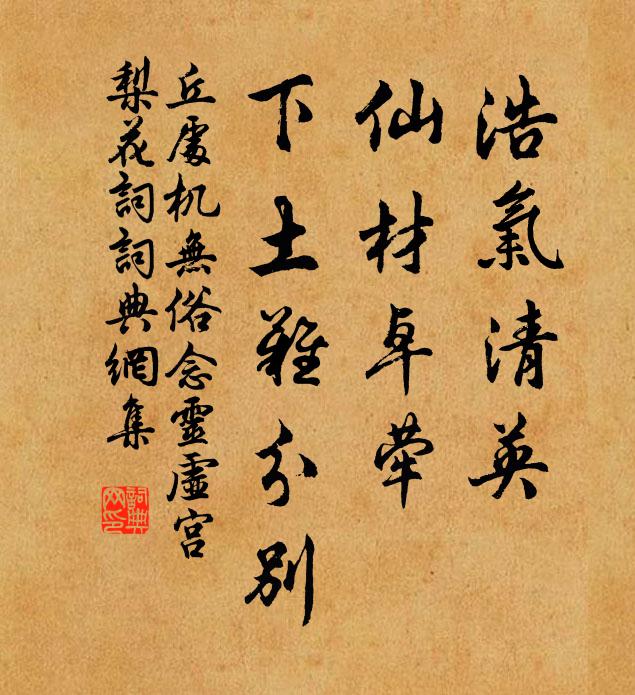 浩氣清英
仙材卓犖
下土難分別
丘處机無俗念靈虛宮
梨花詞詞典網集
詞典
网印